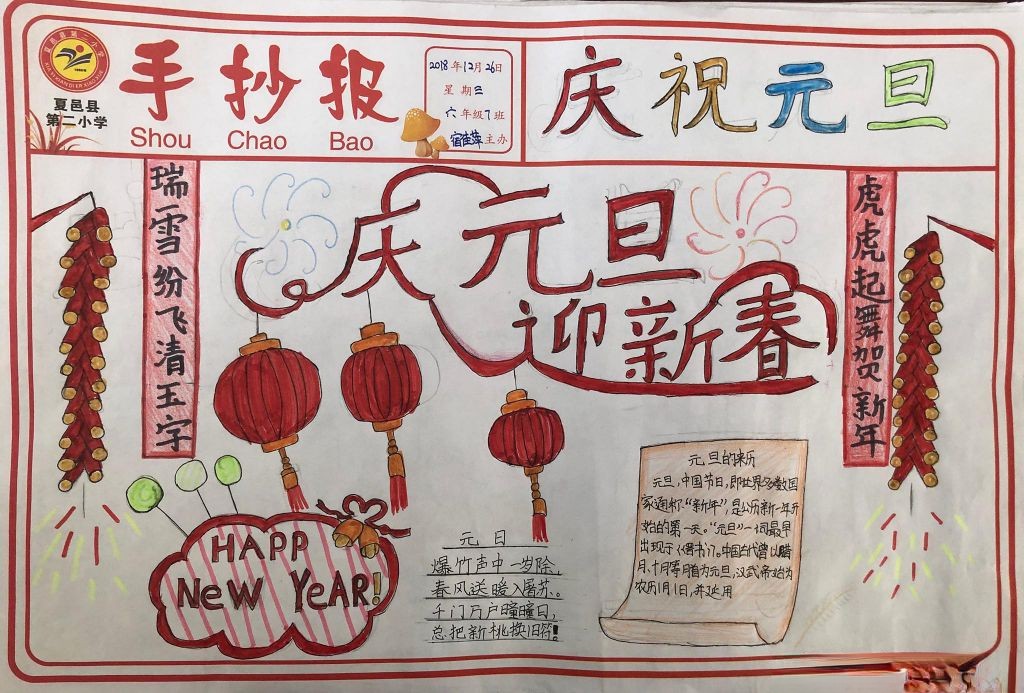 夏邑县第二小学
夏邑县
第二小学
手抄报
Shou Chao Bao
2018年12月26日
星期三
六年级7班
宿佳萍主办
庆祝元旦
瑞雪纷飞清玉字
庆元旦
迎新春
虎虎起舞贺新年
HAPP
NeW YeAR!
元日
爆竹声中一岁除,
春风送暖入屠苏。
千门万户曈曈日,
总把新桃换旧符!
元旦的来历
元旦,中国节日,即世界多数国
家通称"新年",是公历新一年开
始的第一天。"元旦"一词最早
出现于《晋书》。中国古代曾以腊
月、十月等月首为元旦,汉武帝始为
农历1月1日,并延用